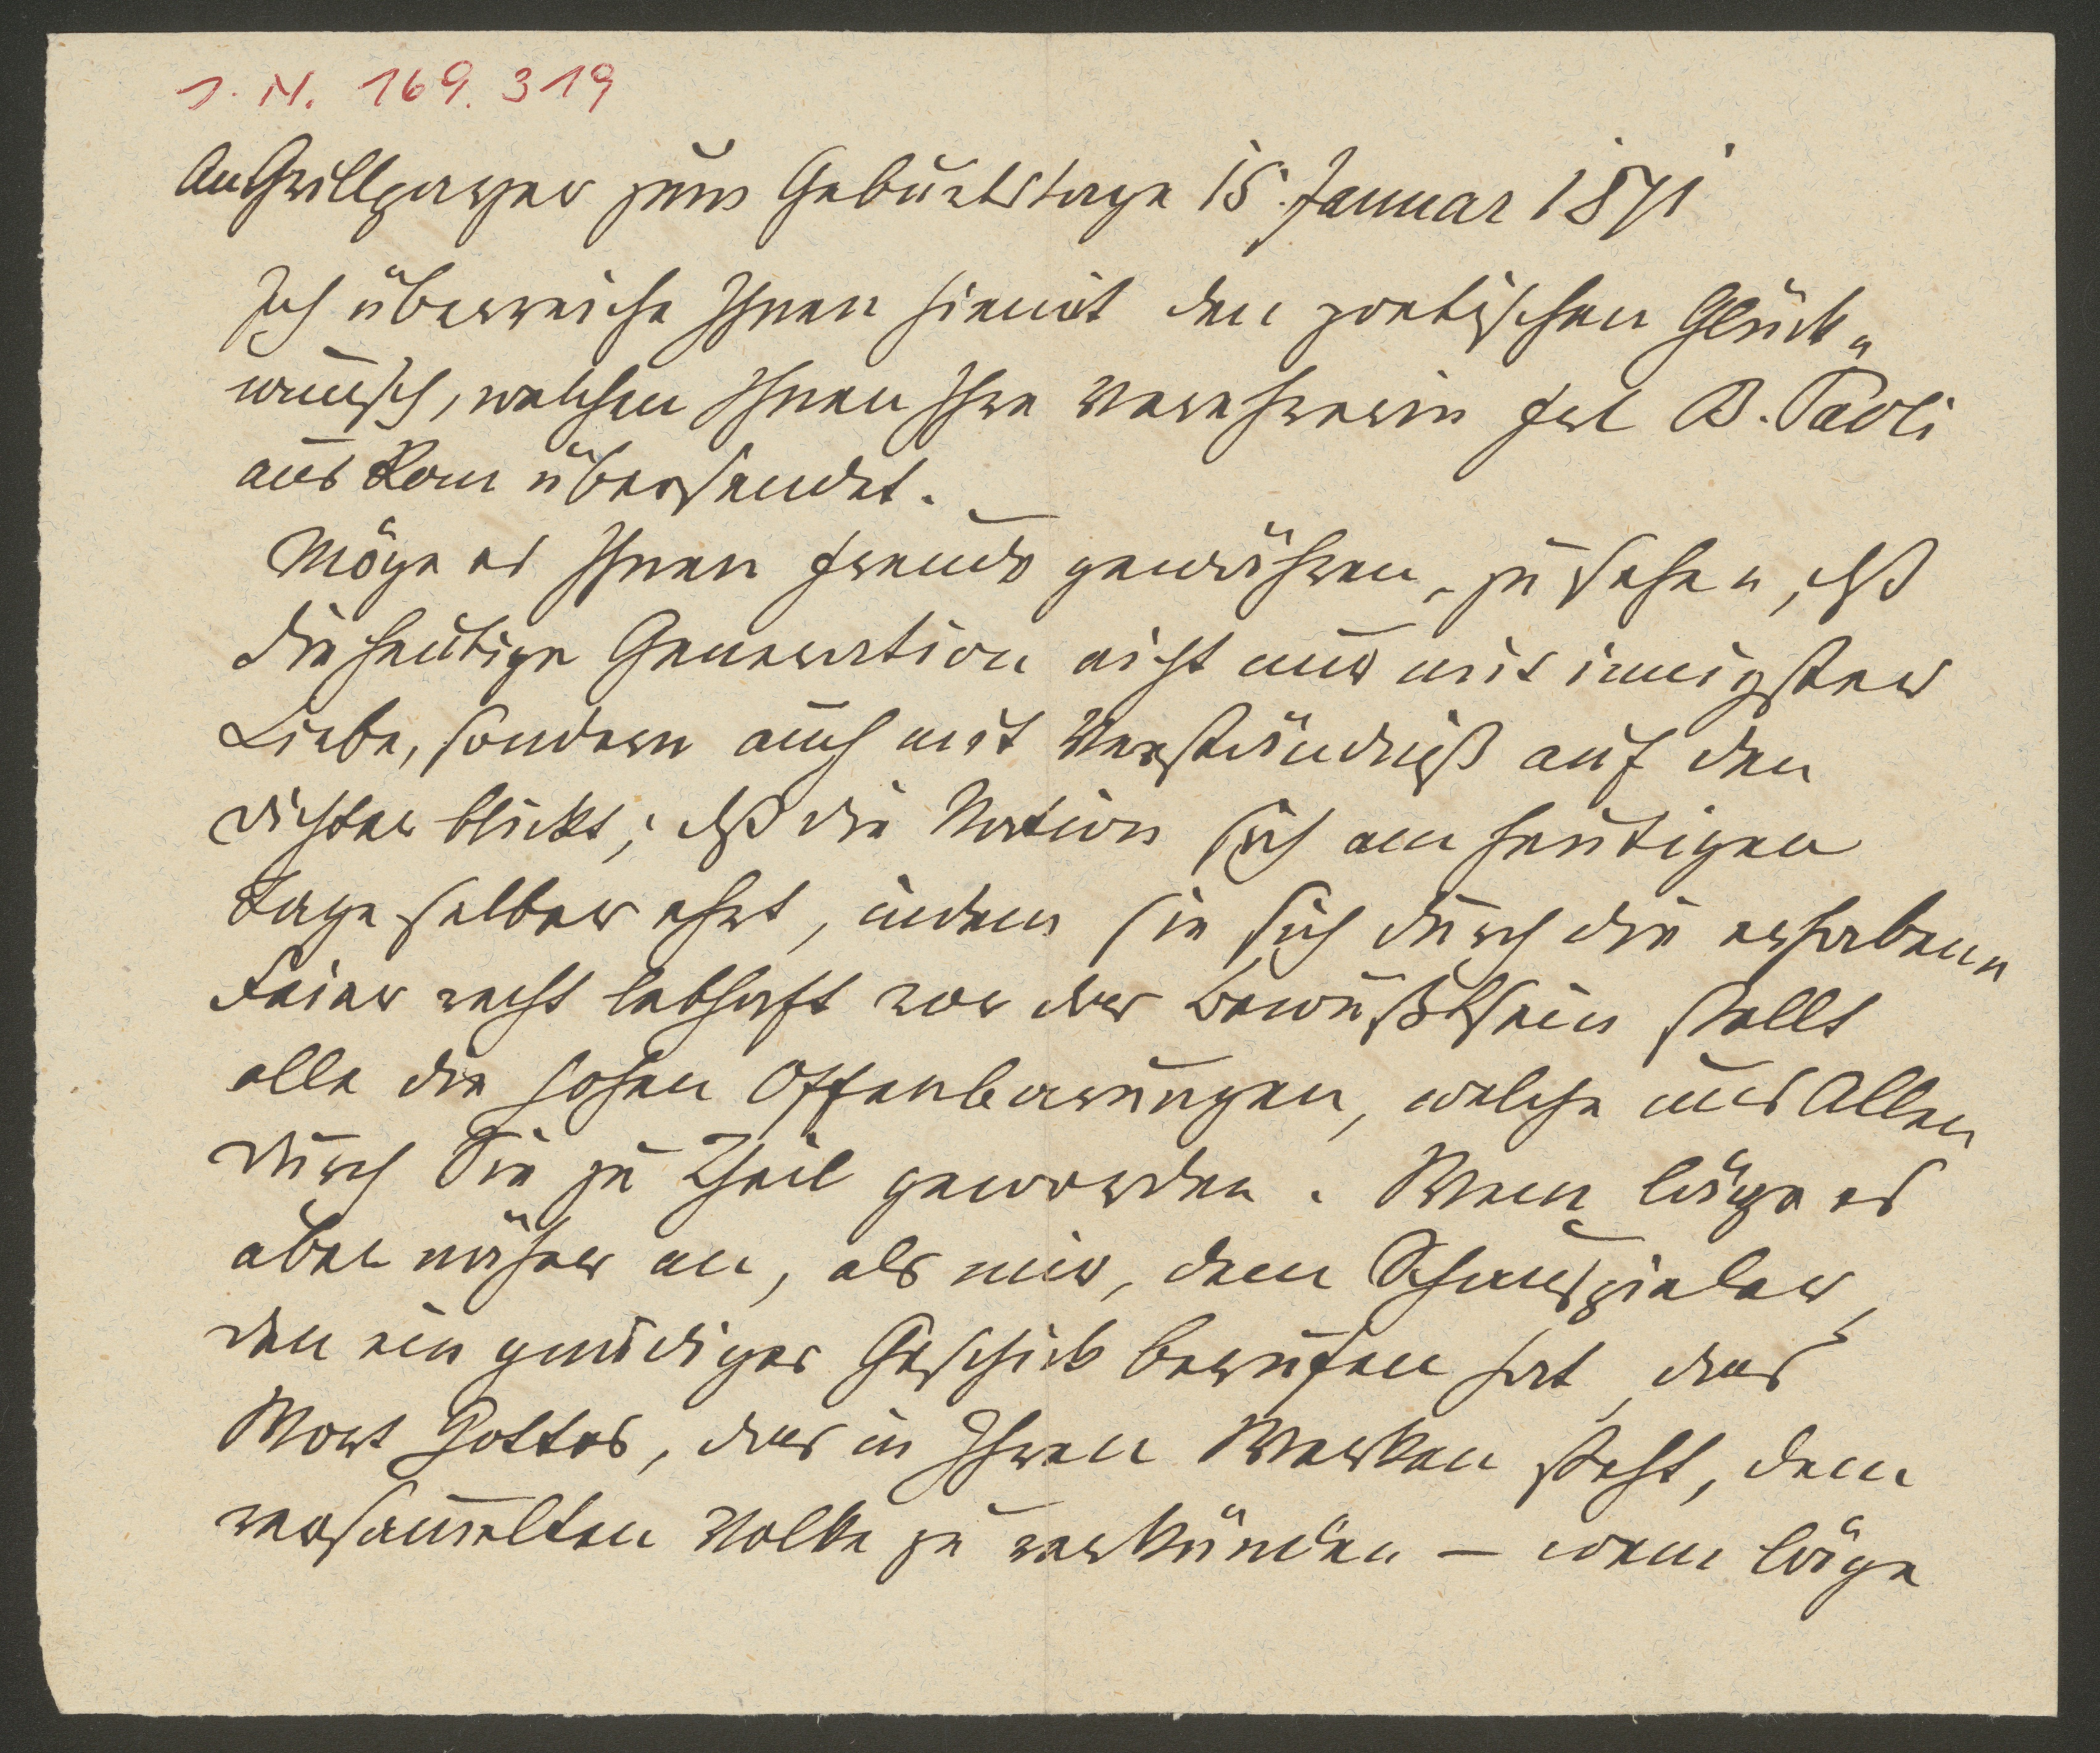 J. N. 169.319
An Grillparzer zum Geburtstage 15. Januar 1871
Ich überreiche Ihnen hiemit den poetischen Glück„
wunsch, welchen Ihnen Ihre Verehrerin Frl B. Paoli
aus Rom übersendet.
Möge es Ihnen Freude gewähren, zu sehen, dß
die heutige Generation nicht nur mit innigster
Liebe, sondern auch mit Verständniß auf den
Dichter blickt; dß die Nation sich am heutigen
Tage selber ehrt, indem sie sich durch die erhabene
Feier recht lebhaft vor das Bewußtsein stellt
alle die hohen Offenbarungen, welche uns Allen
durch Sie zu Theil geworden. Wem läge es
aber näher an, als mir, dem Schauspieler,
den ein gnädiges Geschick berufen hat, das
Wort Gottes, das in Ihren Werken steht, dem
versam̅elten Volke zu verkünden – wem läge